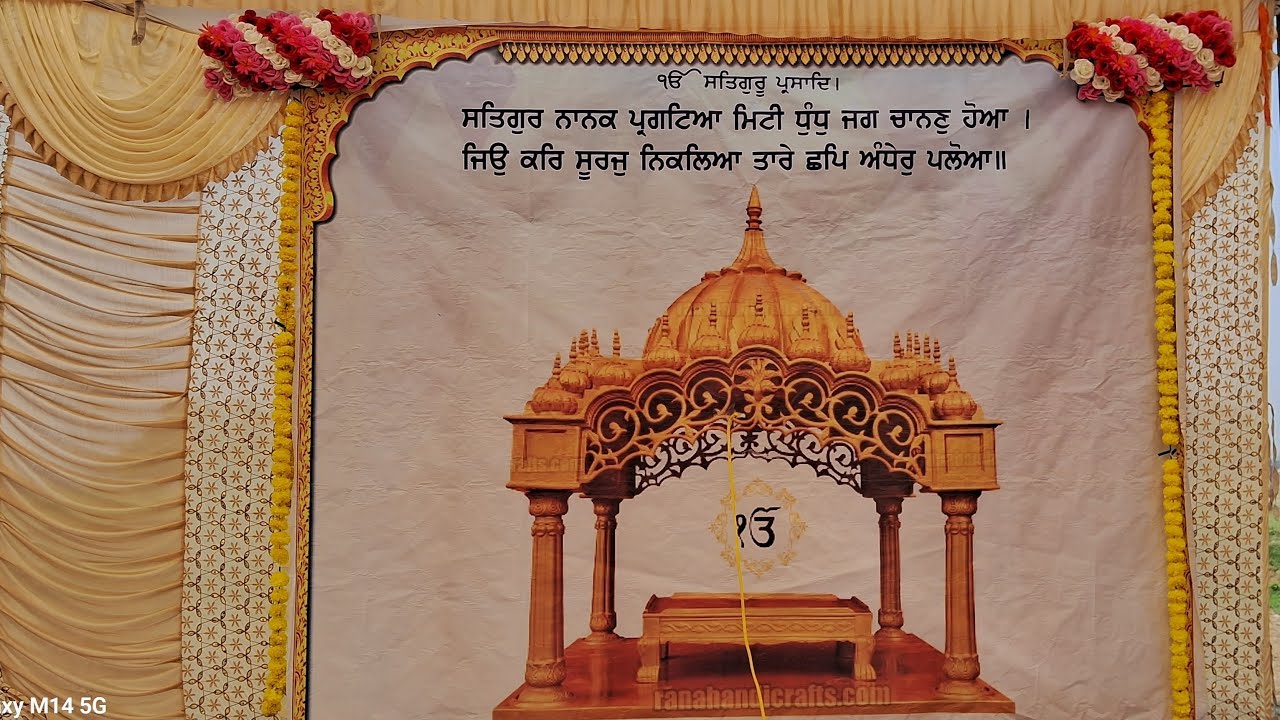 ੴ ਸਤਿਗੁਰੂ ਪ੍ਰਸਾਦਿ।
ਸਤਿਗੁਰ ਨਾਨਕ ਪ੍ਰਗਟਿਆ ਮਿਟੀ ਧੁੰਧੁ ਜਗ ਚਾਨਣੁ ਹੋਆ ।
ਜਿਉ ਕਰਿ ਸੂਰਜੁ ਨਿਕਲਿਆ ਤਾਰੇ ਛਪਿ ਅੰਧੇਰੁ ਪਲੋਆ॥
ੴ
ranahandicrafts.com
xy M14 5G